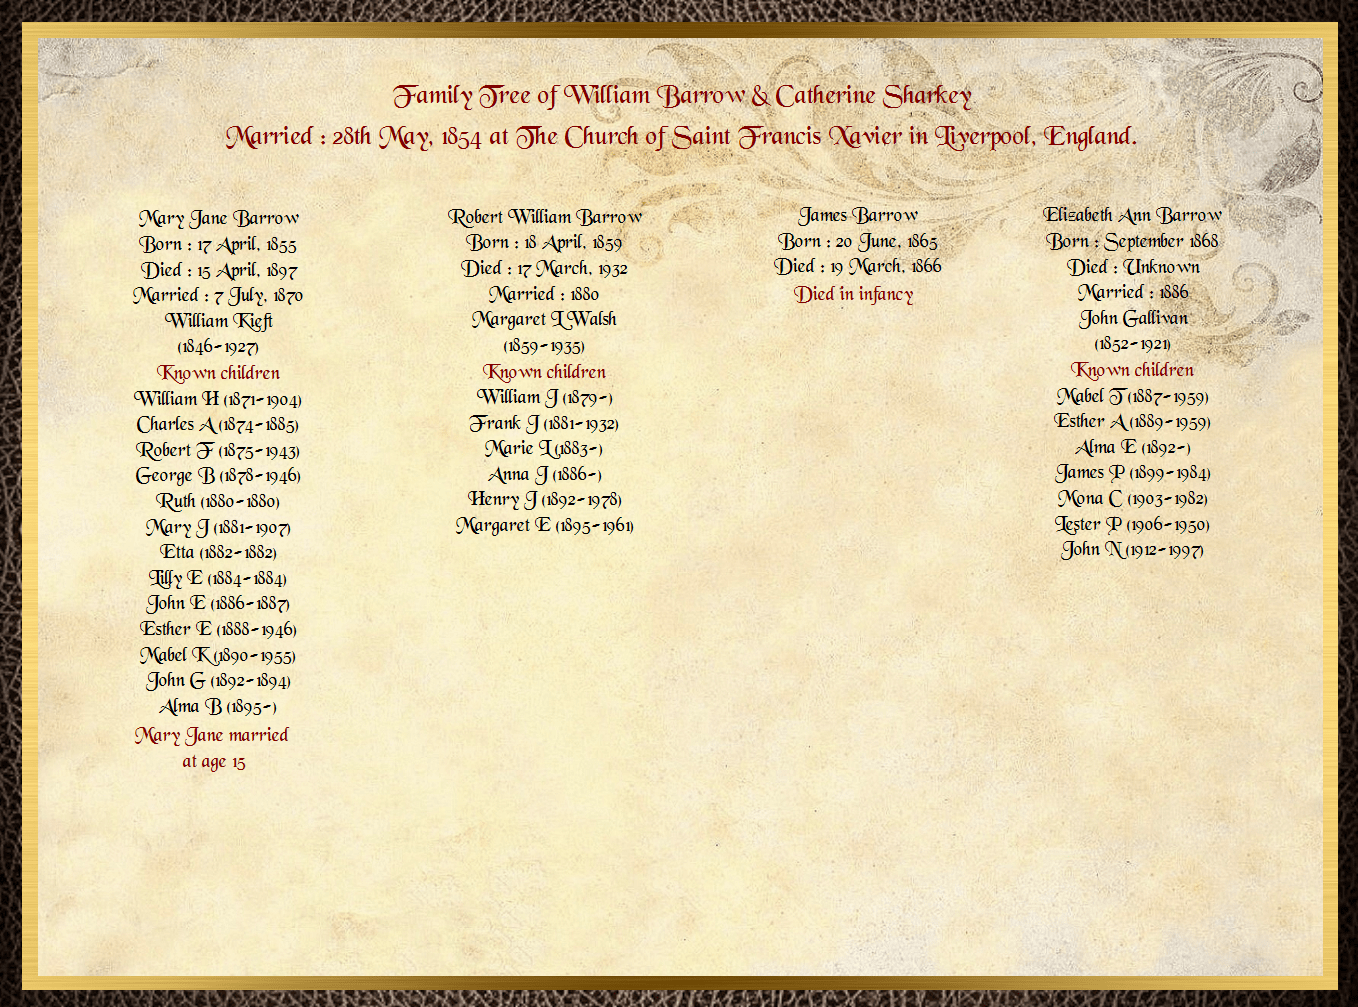 Family Tree of William Barrow & Catherine Sharkey
Married : 28th May, 1854 at The Church of Saint Francis Xavier in Liverpool, England.
Mary Jane Barrow
Born : 17 April, 1855
Died : 15 April, 1897
Married : 7 July, 1870
William Kieft
(1846-1927)
Known children
William H (1871-1904)
Charles A (1874-1885)
Robert F (1875-1943)
George B (1878-1946)
Ruth (1880-1880)
Mary J (1881-1907)
Etta (1882-1882)
Lilly E (1884-1884)
John E (1886-1887)
Esther E (1888-1946)
Mabel K (1890-1955)
John G (1892-1894)
Alma B (1895-)
Mary Jane married
at age 15
Robert William Barrow
Born : 18 April, 1859
Died : 17 March, 1932
Married : 1880
Margaret L Walsh
(1859-1935)
Known children
William J (1879-)
Frank J (1881-1932)
Marie L (1883-)
Anna J (1886-)
Henry J (1892-1978)
Margaret E (1895-1961)
James Barrow
Born : 20 June, 1865
Died : 19 March, 1866
Died in infancy
Elizabeth Ann Barrow
Born : September 1868
Died : Unknown
Married : 1886
John Gallivan
(1852-1921)
Known children
Mabel T (1887-1959)
Esther A (1889-1959)
Alma E (1892-)
James P (1899-1984)
Mona C (1903-1982)
Lester P (1906-1950)
John N (1912-1997)